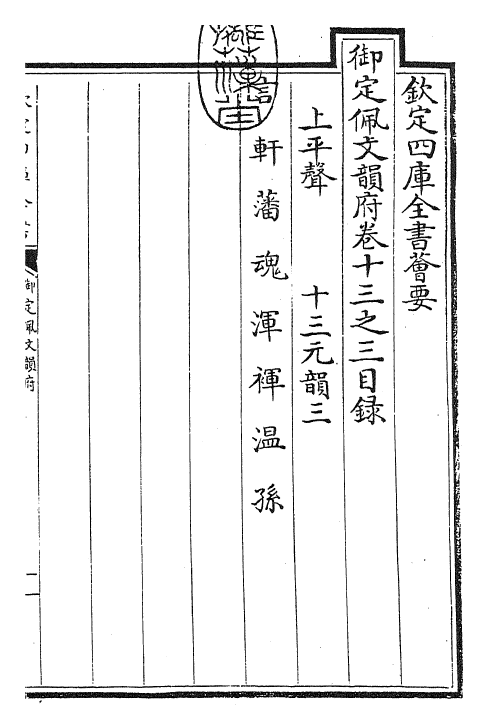 欽定四庫全書薈要
御定佩文韻府卷十三之三目録
上平聲　十三元韻三
軒藩魂渾褌温孫
御定佩文韻府